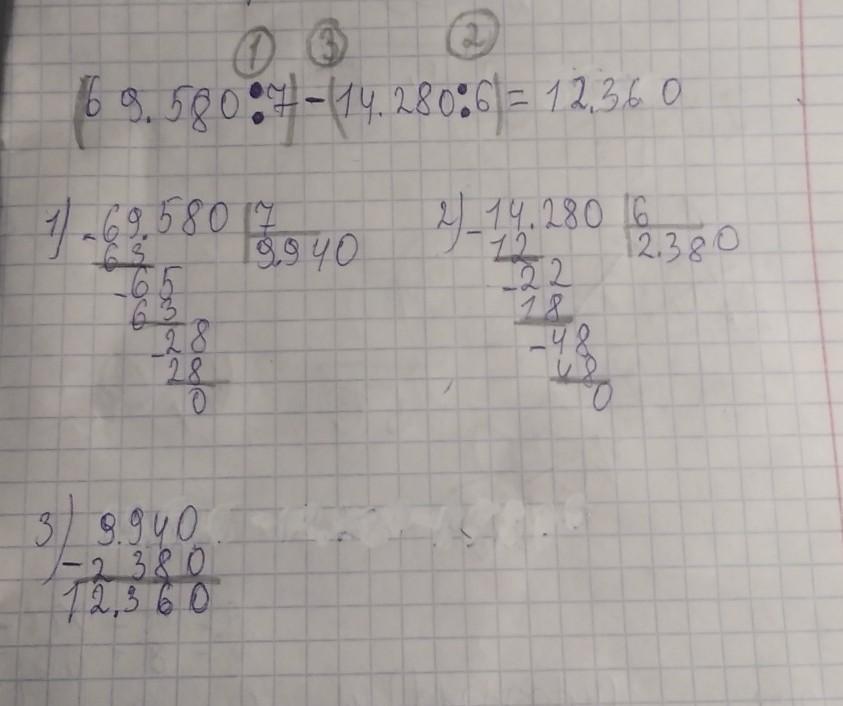 ① ③ ②
(69.580:7)-(14.280:6)=12.360
1) -69.580 | 7
63 9.940
-65
63
-28
28
0
2) -14.280 | 6
12 2.380
-22
18
-48
48
0
3) 9.940
-2 380
12.360